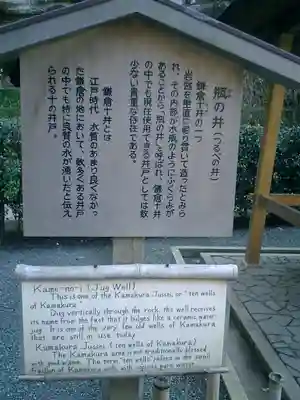 瓶の井(つるべの井)
鎌倉十井の一つ
岩盤を垂直に掘り貫いて造ったとみら
れ、その内部が水瓶のようにふくらみが
あることから「瓶の井」と呼ばれ、鎌倉十井
の中でも現在使用できる井戸としては数
少ない貴重な存在である。
鎌倉十井とは
江戸時代 水質のあまり良くなかっ
た鎌倉の地において、数多くある井戸
の中でも特に良質の水が湧いたと伝え
られる十の井戸。
Kame-no-i (Jug Well)
This is one of the Kamakura Jussei, or "ten wells
of Kamakura"
Dug vertically through the rock, this well receives
its name from the fact that it bulges like a ceramic water
jug. It is one of the very few old wells of Kamakura
that are still in use today.
Kamakura Jussei (ten wells of Kamakura)
The Kamakura area is not traditionally blessed
with good water. The term "ten wells"